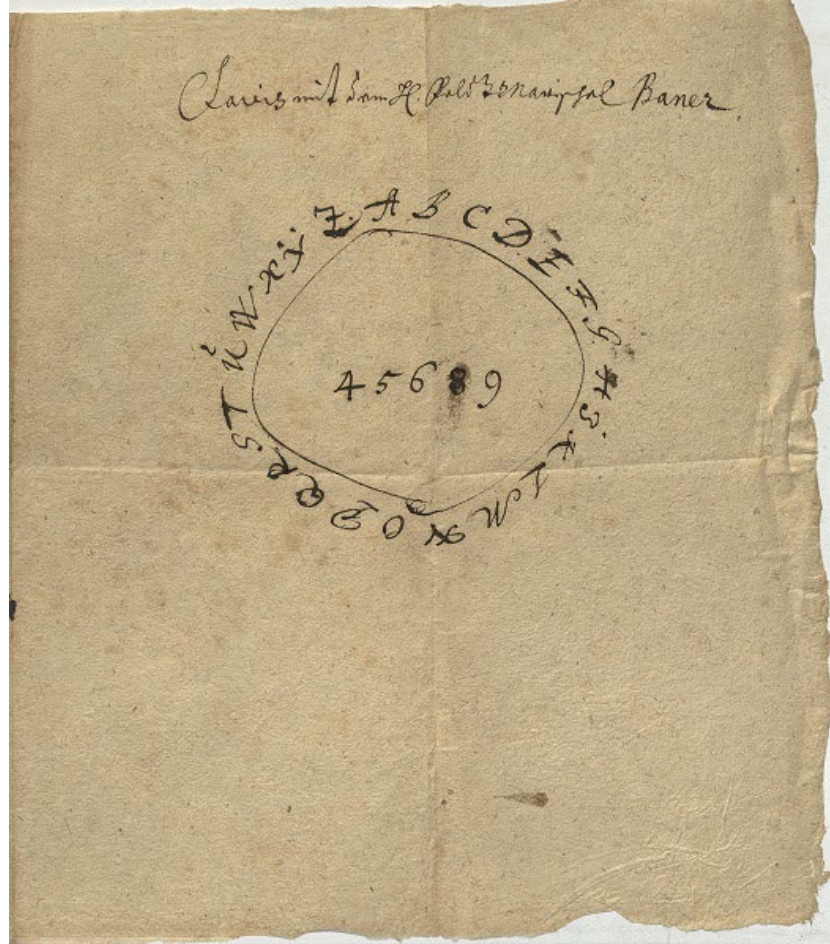 Clavis mit dem H. Feldt Marischal Baner
A B C D E F G H I K L M N O P Q R S T U W X Y Z
4 5 6 8 9